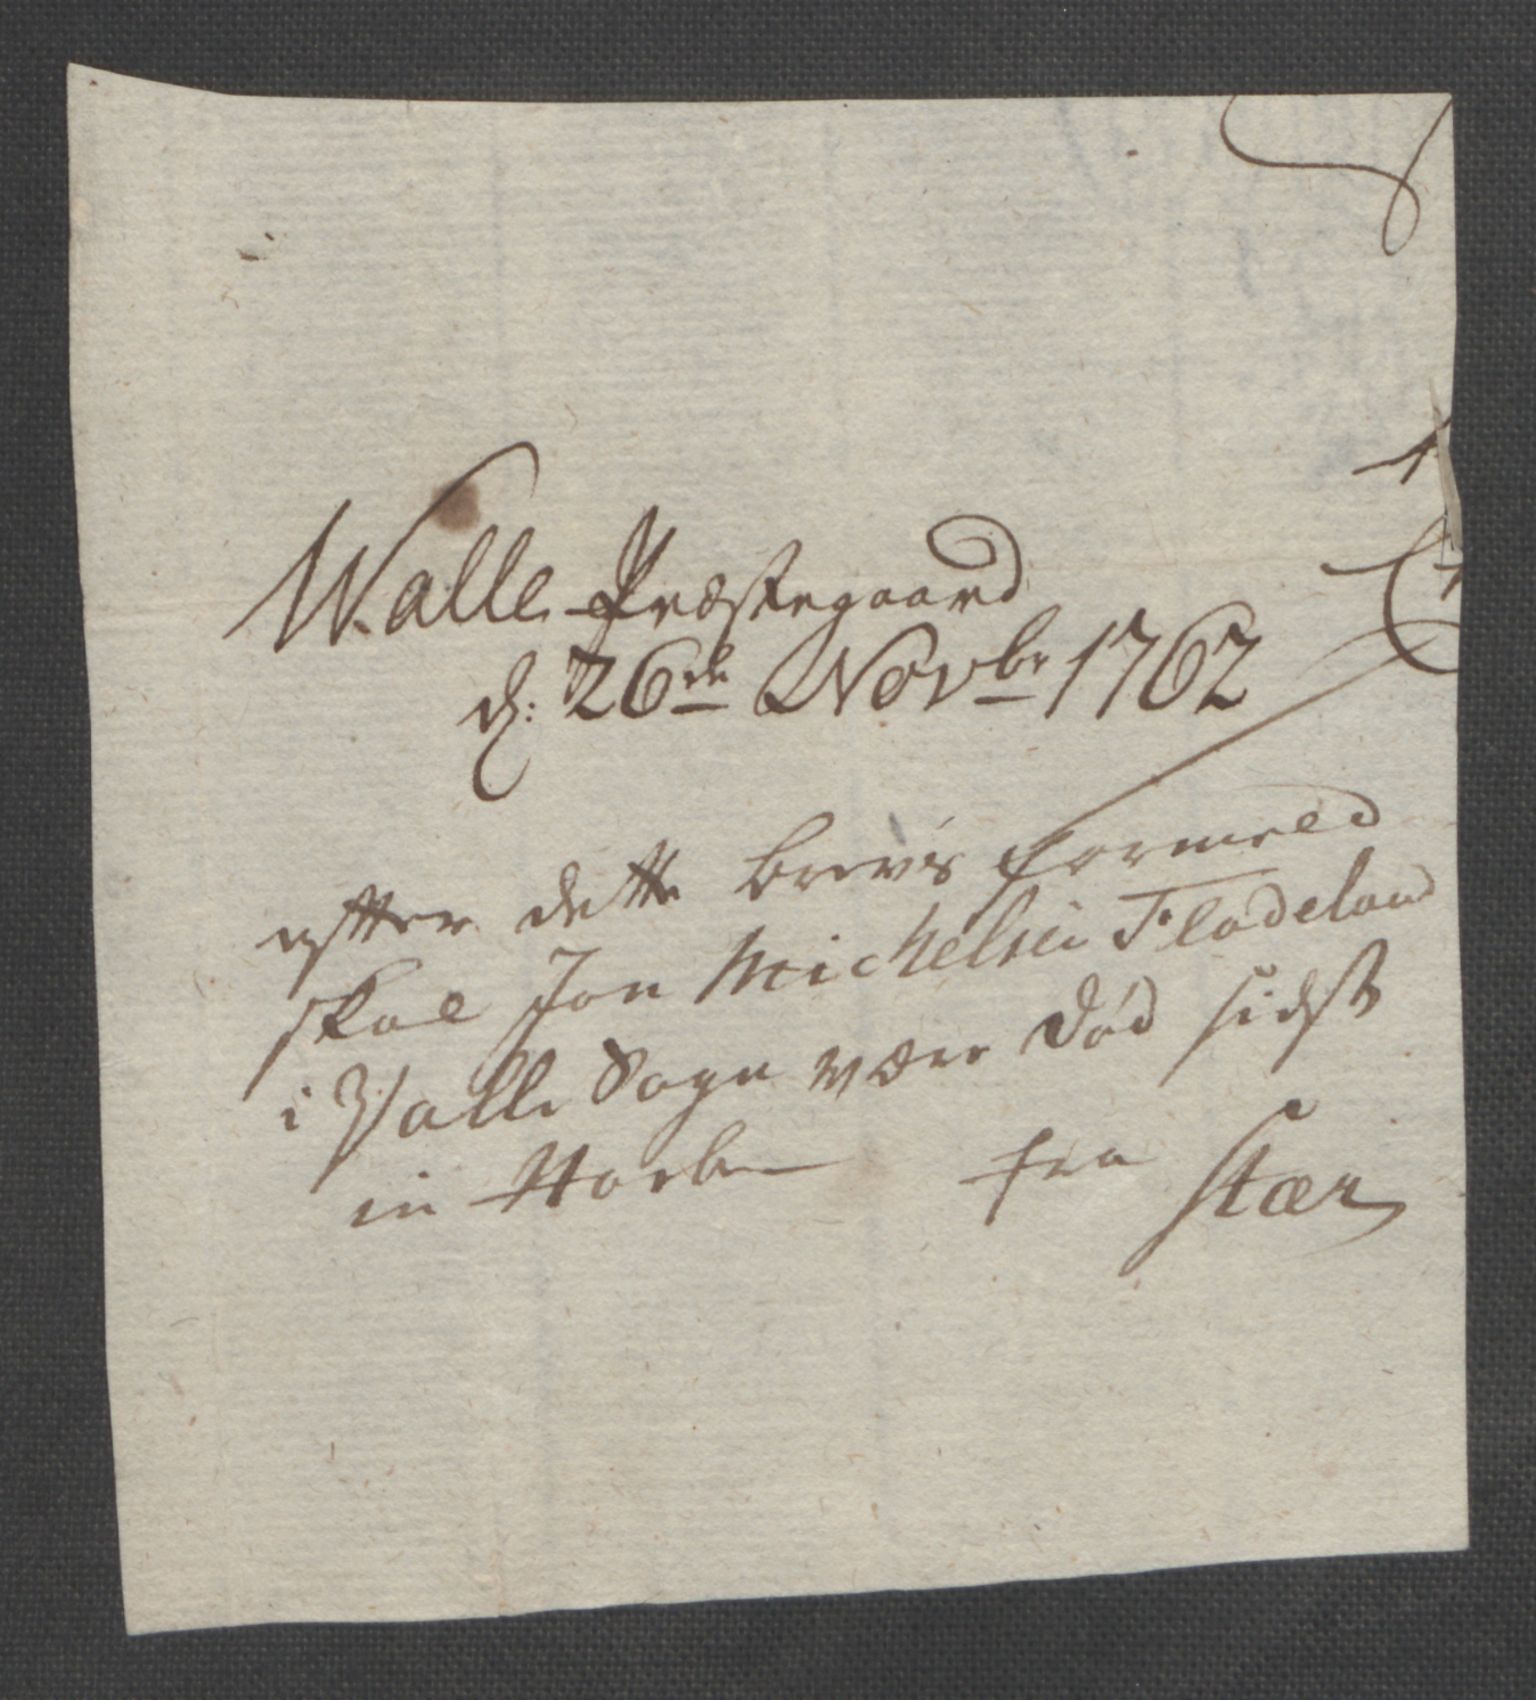 Walle Præstegaard
d: 26de Novbr 1762
efter dette brevis formeld
skal Jon Michelsen Fladeland
i Valle Sogn være død sidst
in
fra Stær